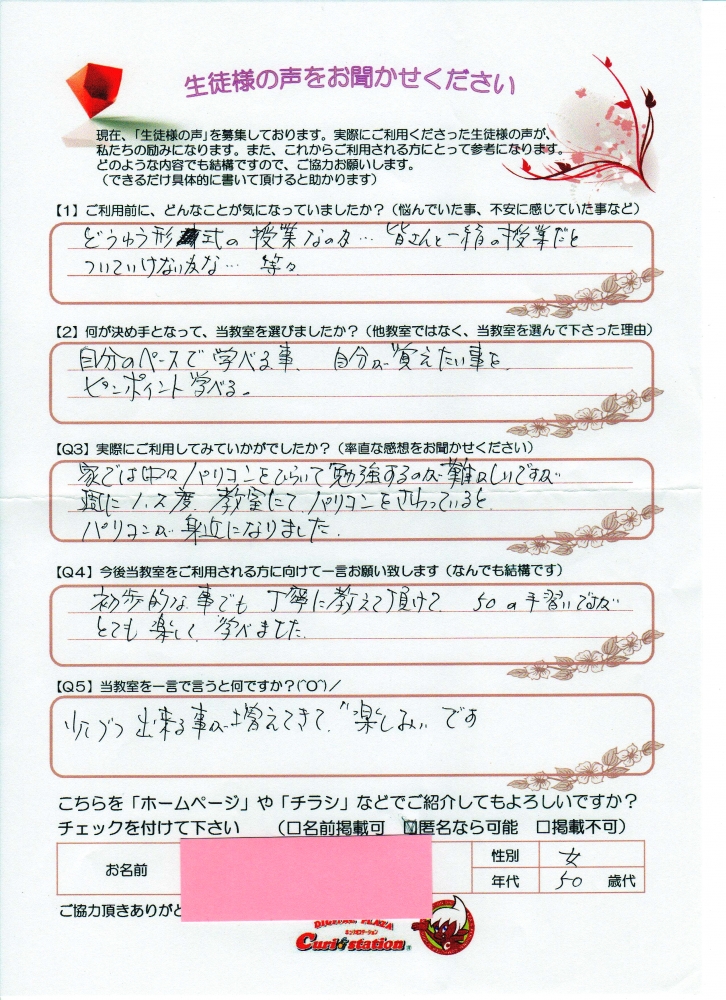 生徒様の声をお聞かせください
現在、「生徒様の声」を募集しております。実際にご利用くださった生徒様の声が、
私たちの励みになります。また、これからご利用される方にとって参考になります。
どのような内容でも結構ですので、ご協力お願いします。
（できるだけ具体的に書いて頂けると助かります）
【1】ご利用前に、どんなことが気になっていましたか？（悩んでいた事、不安に感じていた事など）
どうゆう形式の授業なのか… 皆さんと一緒の授業だと
ついていけないかな… 等々
【2】何が決め手となって、当教室を選びましたか？（他教室ではなく、当教室を選んで下さった理由）
自分のペースで学べる事、自分が覚えたい事を
ピンポイント学べる。
【Q3】実際にご利用してみていかがでしたか？（率直な感想をお聞かせください）
家では中々パソコンをひらいて勉強するのが難しいですが
週に1、2度、教室にて、パソコンをさわっていると、
パソコンが身近になりました。
【Q4】今後当教室をご利用される方に向けて一言お願い致します（なんでも結構です）
初歩的な事でも丁寧に教えて頂けて 50の手習いですが
とても楽しく学べました。
【Q5】当教室を一言で言うと何ですか？(^O^)／
少しづつ出来る事が増えてきて、〝楽しみ〟です
こちらを「ホームページ」や「チラシ」などでご紹介してもよろしいですか？
チェックを付けて下さい （□名前掲載可 ☑匿名なら可能 □掲載不可）
お名前
性別 女
年代 50 歳代
ご協力頂きありがと
DIGITAL PLAZA
キュリオステーション
Curio station